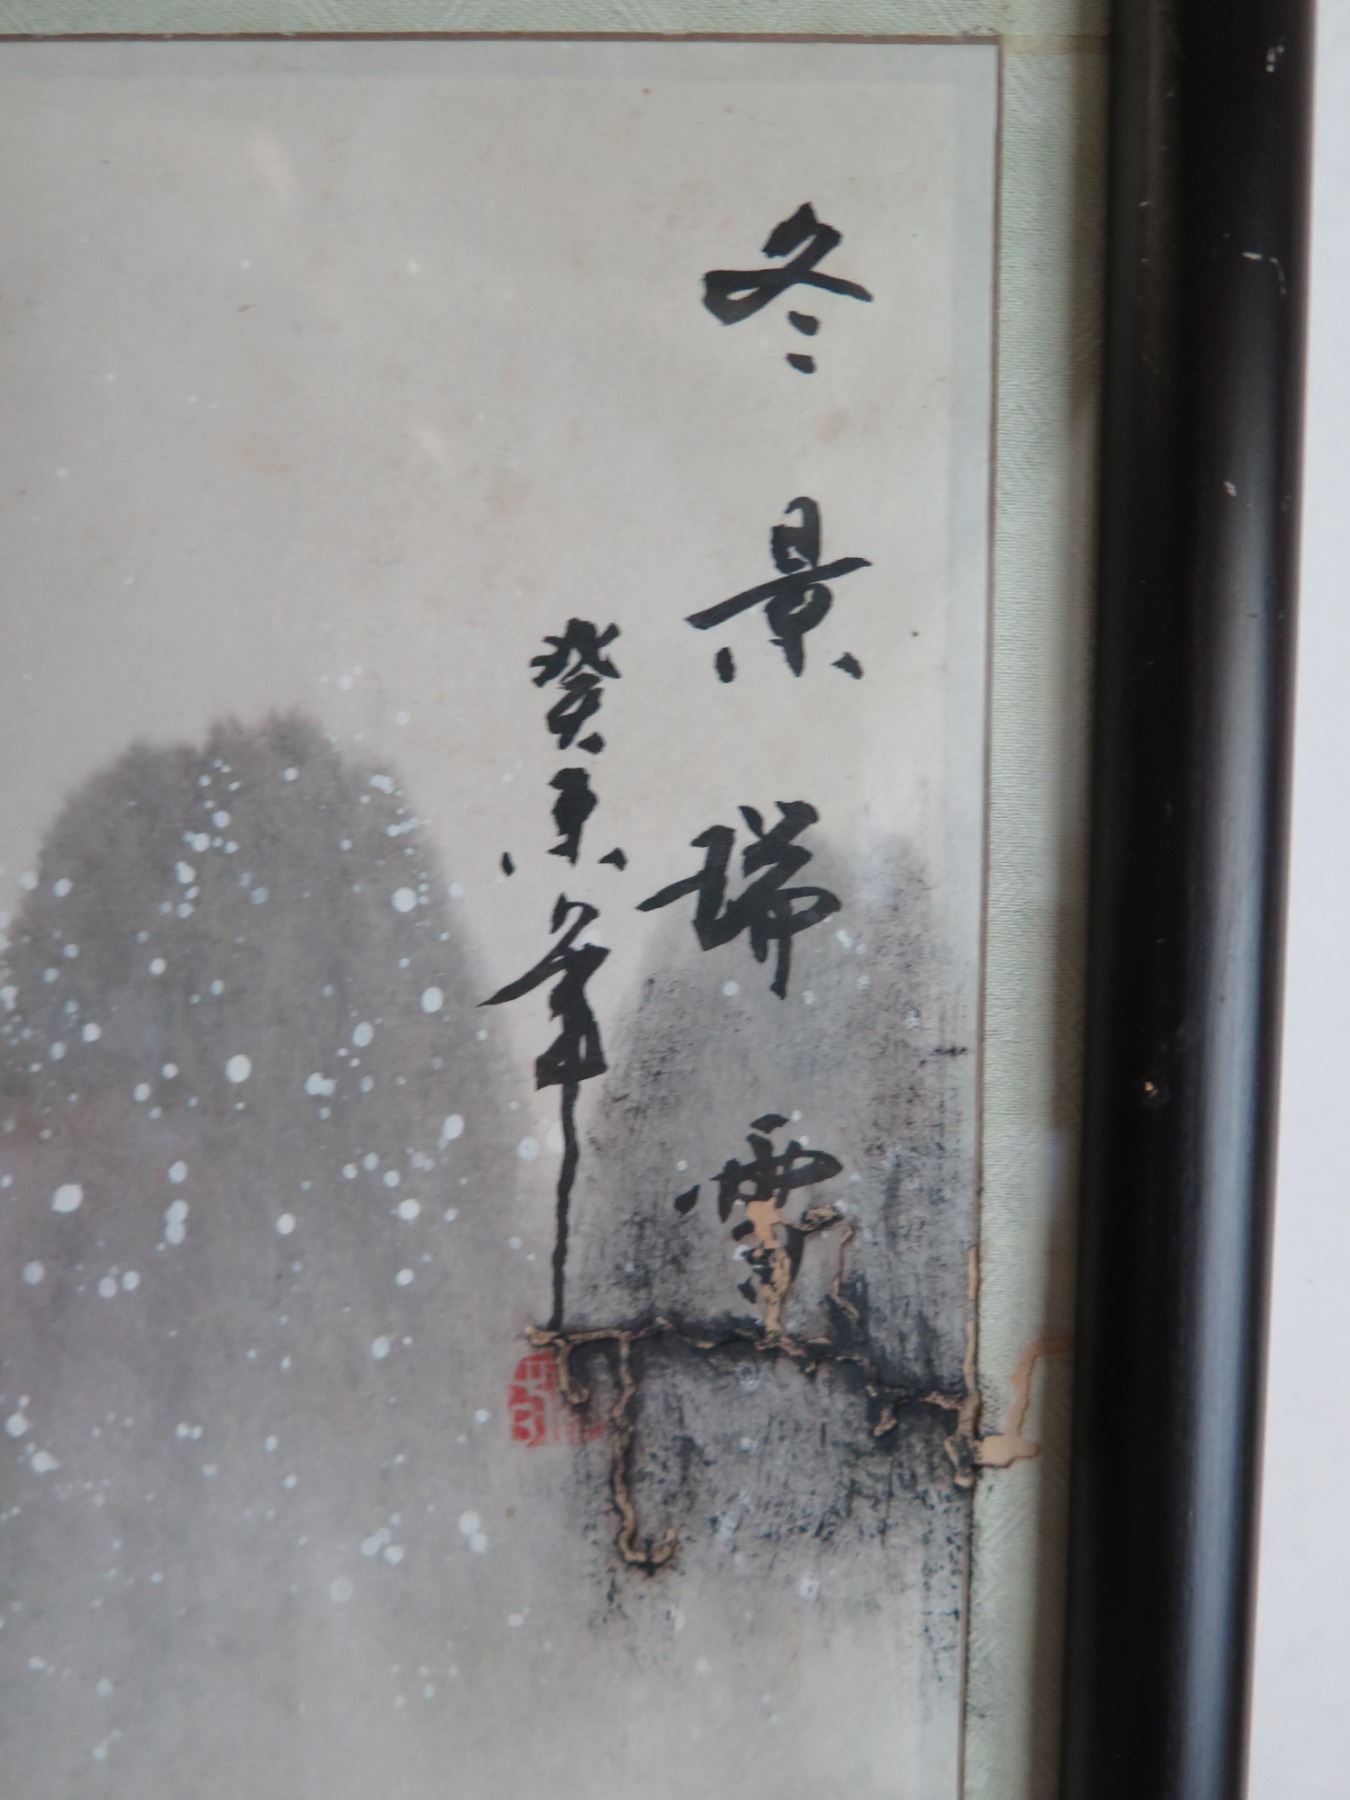 冬景瑞雪
癸未年